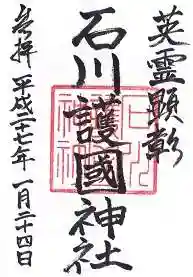 英霊顕彰
石川護國神社
奉拝 平成二十七年 一月二十四日